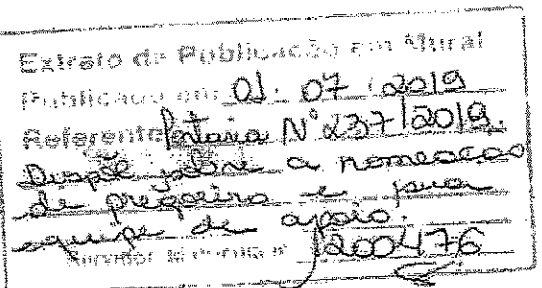 Extrato de Publicação em Mural
Publicado em: 01. 07 / 2019
Referente: Portaria N° 237/2019.
Dispõe sobre a nomeacao
de pregoeiro e sua
equipe de apoio.
Servidor Matrícula nº 1200476